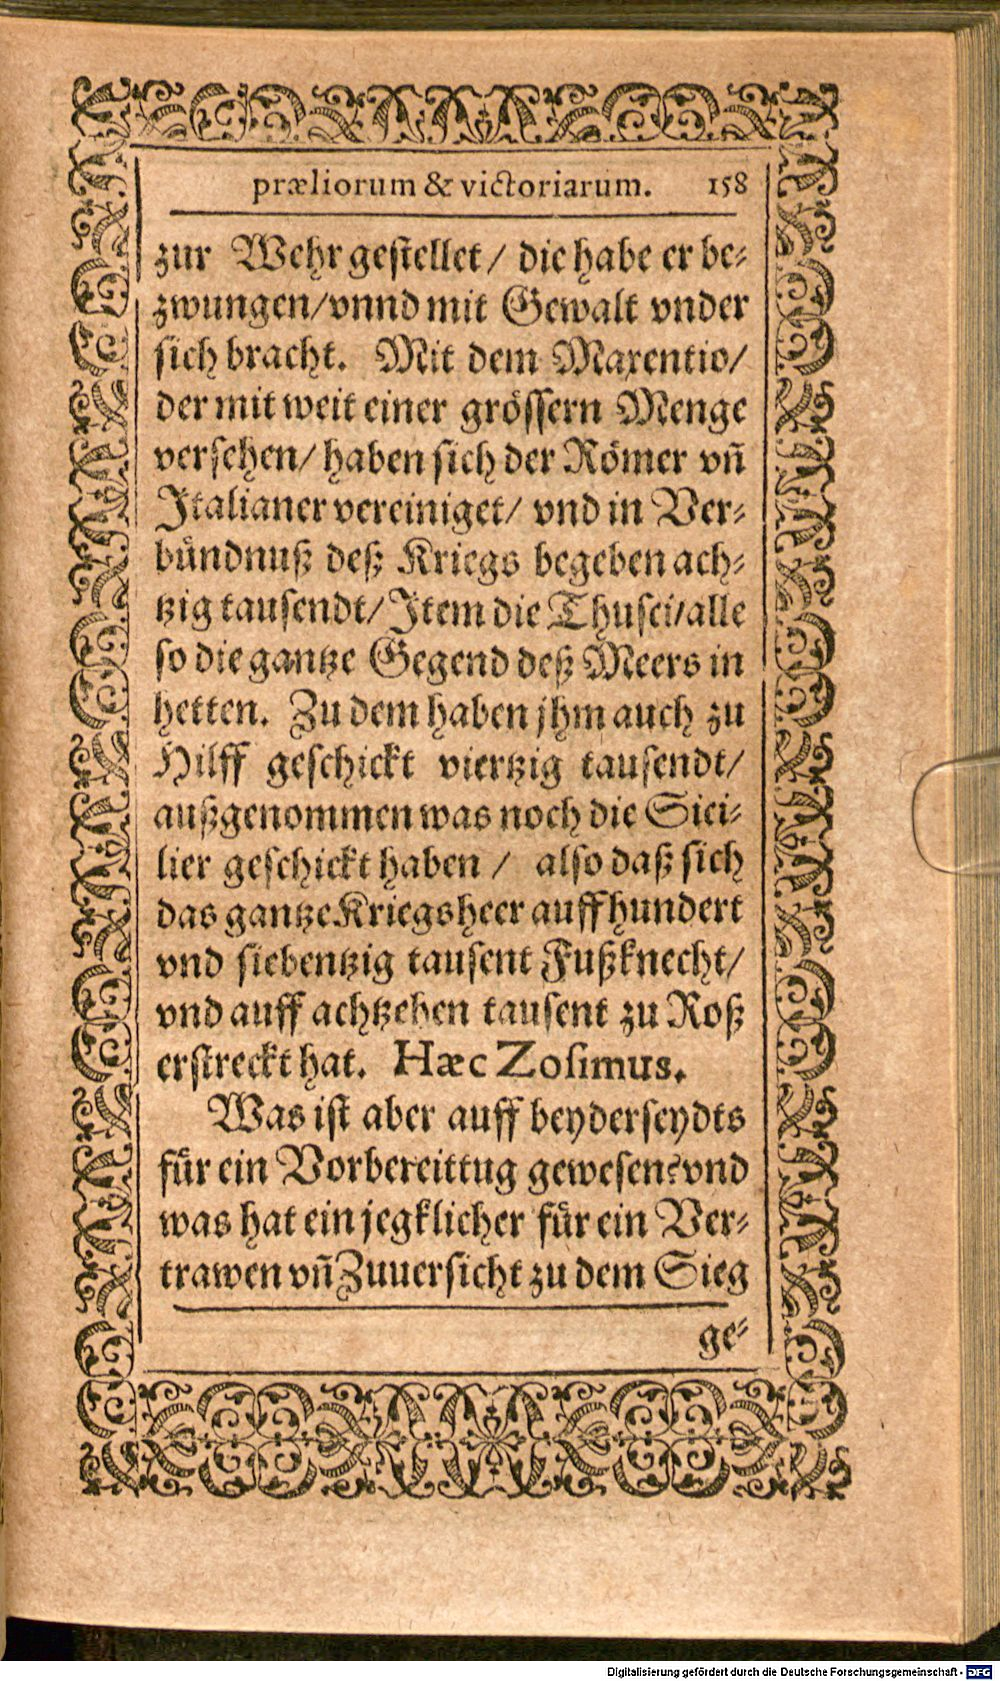 præliorum & victoriarum. 158
zur Wehr gestellet/ die habe er be⸗
zwungen/vnnd mit Gewalt vnder
sich bracht. Mit dem Maxentio/
der mit weit einer grössern Menge
versehen/ haben sich der Römer vñ
Italianer vereiniget/ vnd in Ver⸗
bündnuß deß Kriegs begeben ach⸗
tzig tausendt/Item die Thusci/alle
so die gantze Gegend deß Meers in
hetten. Zu dem haben jhm auch zu
Hilff geschickt viertzig tausendt/
außgenommen was noch die Sici⸗
lier geschickt haben / also daß sich
das gantze Kriegsheer auff hundert
vnd siebentzig tausent Fußknecht/
vnd auff achtzehen tausent zu Roß
erstreckt hat. Hæc Zosimus.
Was ist aber auff beyderseydts
für ein Vorbereittug gewesen? vnd
was hat ein jegklicher für ein Ver⸗
trawen vñ Zuuersicht zu dem Sieg
ge⸗
Digitalisierung gefördert durch die Deutsche Forschungsgemeinschaft - DFG